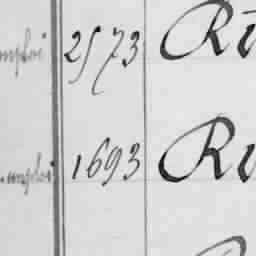 mploi 2573 Ri
mploi 1693 Ri